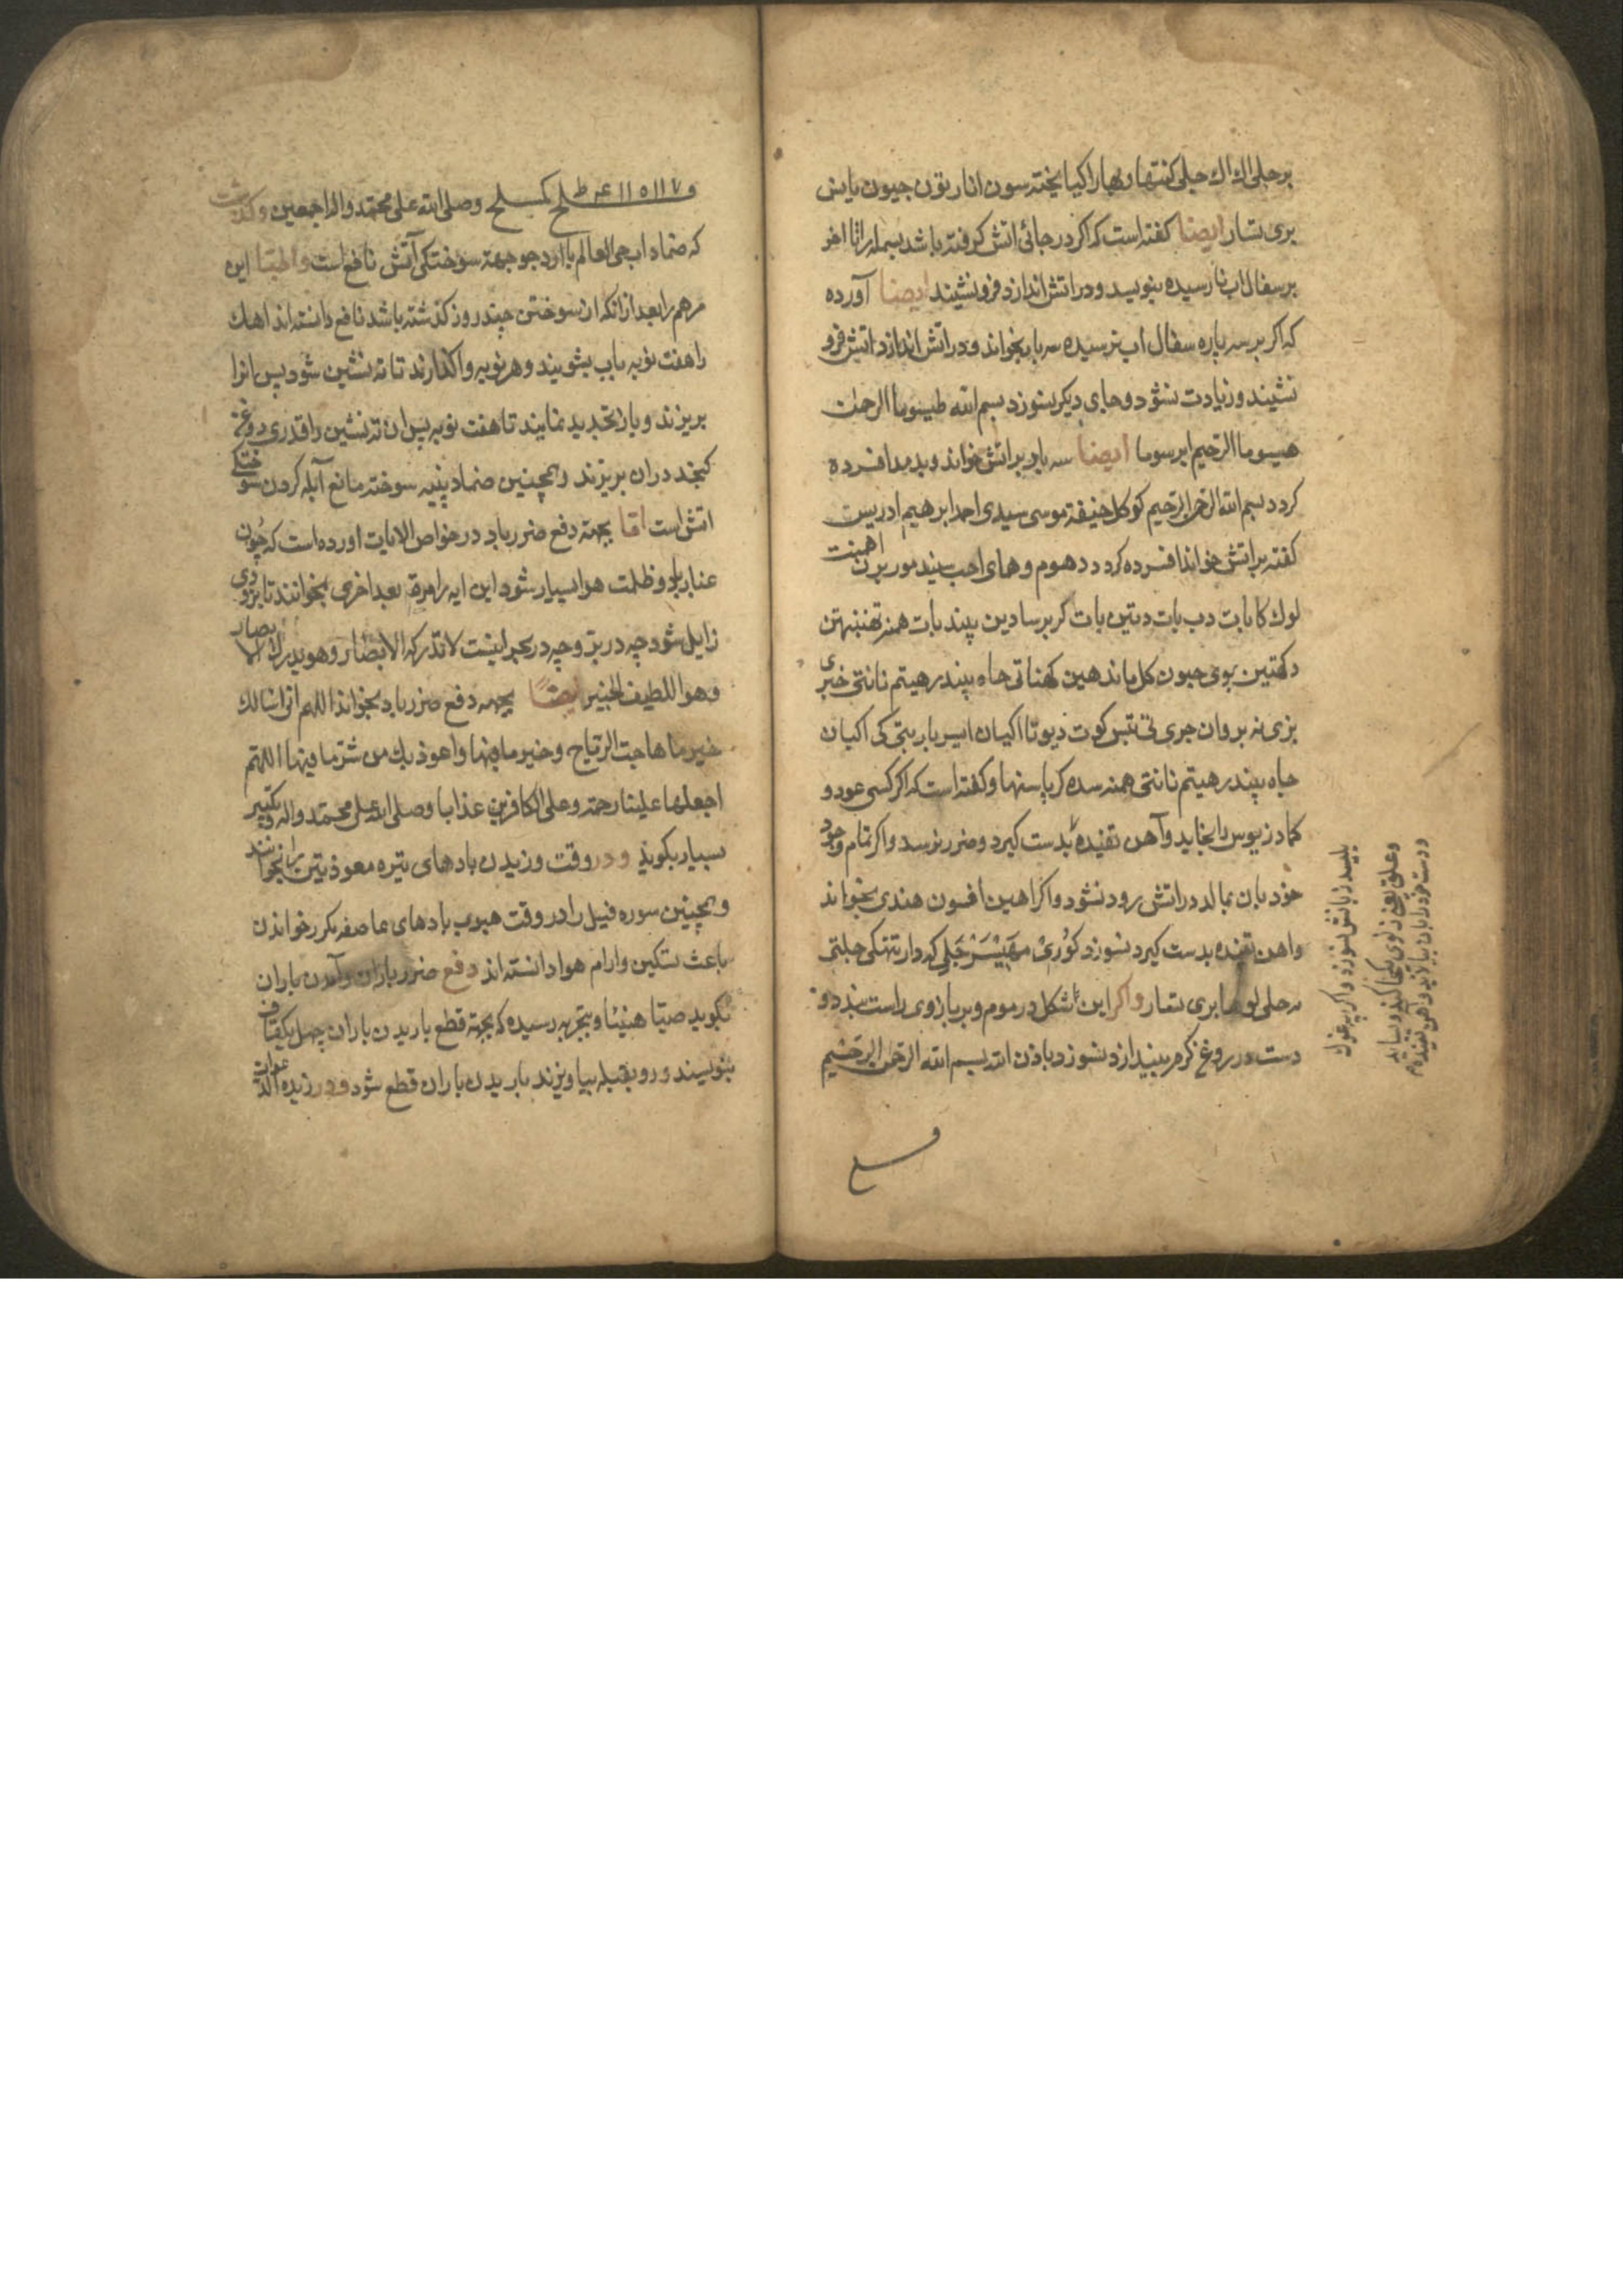 بر جلی اك اك جلی کنتها و بهارا کیا یخته سون انار نون جیون پایس
بری تسار ایضا کفته است که اکر در جائی اتش کرفته باشد بسمله را تا اخر
بر سفال اب نارسیده بنویسد و در اتش اندازد فرو نشیند ایضا آورده
که اکر بر سه پاره سفال اب نرسیده سه بار بخواند و در اتش اندازد اتش فرو
نشیند و زیادت نشود و جای دیکر نسوزد بسم الله طیسوما الرحمن
هیسوما الرحیم ابرسوما ایضا سه بار بر اتش خواند و بدمد افسرده
کردد بسم الله الرحمن الرحیم کوکل خیفة موسی سیدی احمد ابرهیم ادریس
کفته بر اتش خواند افسرده کردد دهوم و همای احب سیند مور برن اهمنت
لوك کا بابت دب بات دیتین بات کر بر سادین پیند بات همنر تهننهتن
دکهتین بوی جیون کل ماند هین کهناتی جاه پیند رهیتم نانتی خبری
بزی نه بروان جری تی تبس کوت دیوتا اکیان ایسر پاربتی کی اکیان
جاه پیند رهیتم نانتی همنه سده کر پاسنها و کفته است که اکر کسی عود و
کمادریوس را بخاید و آهن تفیده بدست کیرد و ضرر نرسد و اکر تمام وجود
خود بان بمالد در اتش رود نشود و اکر اهین افسون هندی بخواند
و اهن تفیده بدست کیرد نسوزد کوری مهیسر جلی که دار تهنکی جلتی
نه جلی لوها بری تسار و اکر این اشکل در موم و بر بازوی راست بندد و
دست در روغن کرم بیندازد نسوزد باذن الله بسم الله الرحمن الرحیم
بلیسد زبانش نسوزد و اکر پیه غوك
وعلق یعنی زلوی یکجا کند و بساید
و دست خود را بان بیالاید و اهن تفیده
و ۱۱۷ ۱۱۵ و صلی الله علی محمد و اله اجمعین و کذشت
که ضماد اب حی العالم با ارد جو جهة سوختکی آتش نافع است و اطبا این
مرهم را بعد از انکه از سوختن چند روز کذشته باشد نافع دانسته اند اهك
را هفت نوبه باب بشویند و هر نوبه واکذارند تا ته نشین شود پس انرا
بریزند و باز تجدید نمایند تا هفت نوبه پس ان ته نشین را قدری روغن
کنجد دران بریزند و همچنین ضماد پنبه سوخته مانع آبله کردن سوختکی
اتش است اما بجهة دفع ضرر باد در خواص الایات اورده است که چون
غبار باد و ظلمت هوا بسیار شود این ایه را مرة بعد اخری بخوانند تا بزودی
زایل شود چه در بر و چه در بحر اینست لا تدرکه الابصار و هو یدرك الابصار
و هو اللطیف الخبیر ایضا بجهه دفع ضرر باد بخواند اللهم انی اسالك
خیر ما هاجت الریاح و خیر ما فیها و اعوذ بك من شر ما فیها اللهم
اجعلها علینا رحمة و علی الکافرین عذابا و صلی الله علی محمد و اله و تکبیر
بسیار بکوید و در وقت وزیدن بادهای تیره معوذیتین را بخوانند
و همچنین سوره فیل را در وقت هبوب بادهای عاصفه مکرر خواندن
باعث تسکین و ارام هوا دانسته اند دفع ضرر باران و آمدن باران
بکوید صیبا هنیئا و بتجربه رسیده که بجهة قطع باریدن باران چهل یك قاف
بنویسند و رو بقبله بیاویزند باریدن باران قطع شود و در زبده الدعوات